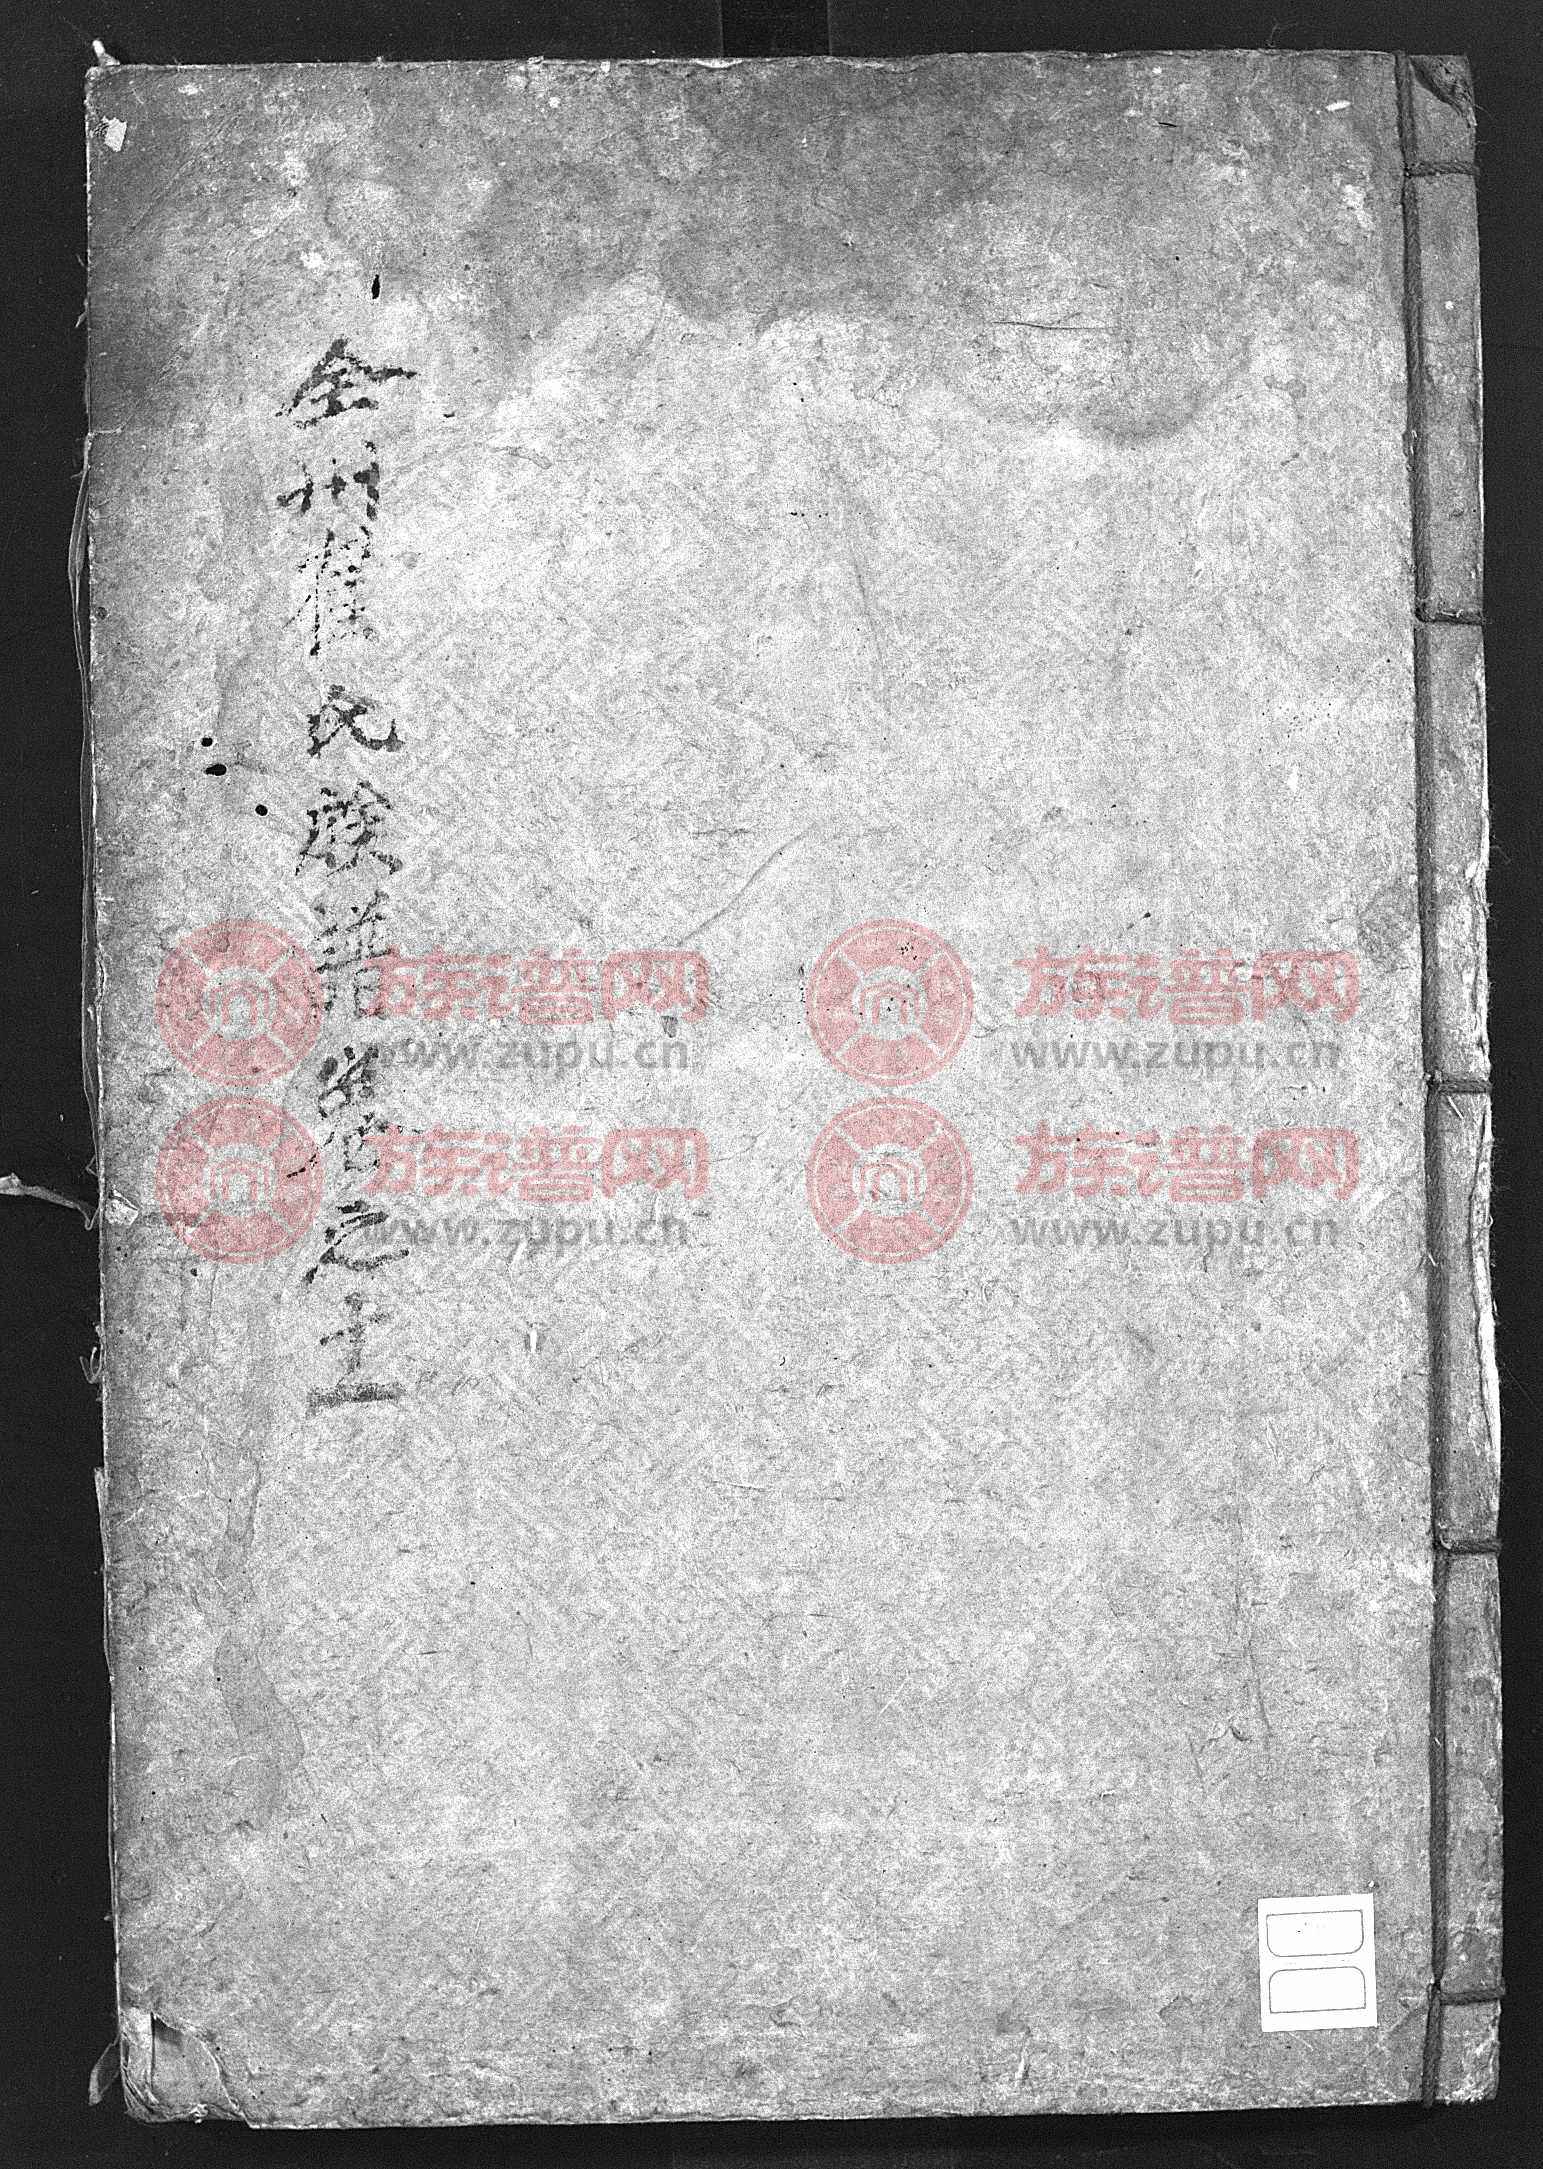 全州崔氏族譜卷之十一
族谱网
www.zupu.cn
族谱网
www.zupu.cn
族谱网
www.zupu.cn
族谱网
www.zupu.cn